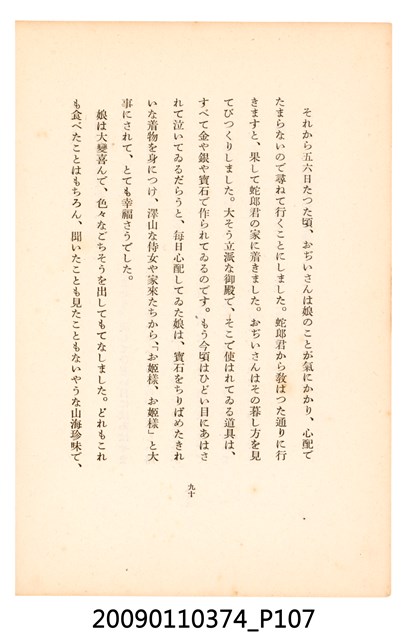 それから五六日たつた頃、おぢいさんは娘のことが氣にかかり、心配で
たまらないので尋ねて行くことにしました。蛇郎君から敎はつた通りに行
きますと、果して蛇郎君の家に着きました。おぢいさんはその暮し方を見
てびつくりしました。大そう立派な御殿で、そこで使はれてゐる道具は、
すべて金や銀や寶石で作られてゐるのです。もう今頃はひどい目にあはさ
れて泣いてゐるだらうと、毎日心配してゐた娘は、寶石をちりばめたきれ
いな着物を身につけ、澤山な侍女や家來たちから、「お姬樣、お姬樣」と大
事にされて、とても幸福さうでした。
娘は大變喜んで、色々なごちそうを出してもてなしました。どれもこれ
も食べたことはもちろん、聞いたことも見たこともないやうな山海珍味で、
九十
20090110374_P107